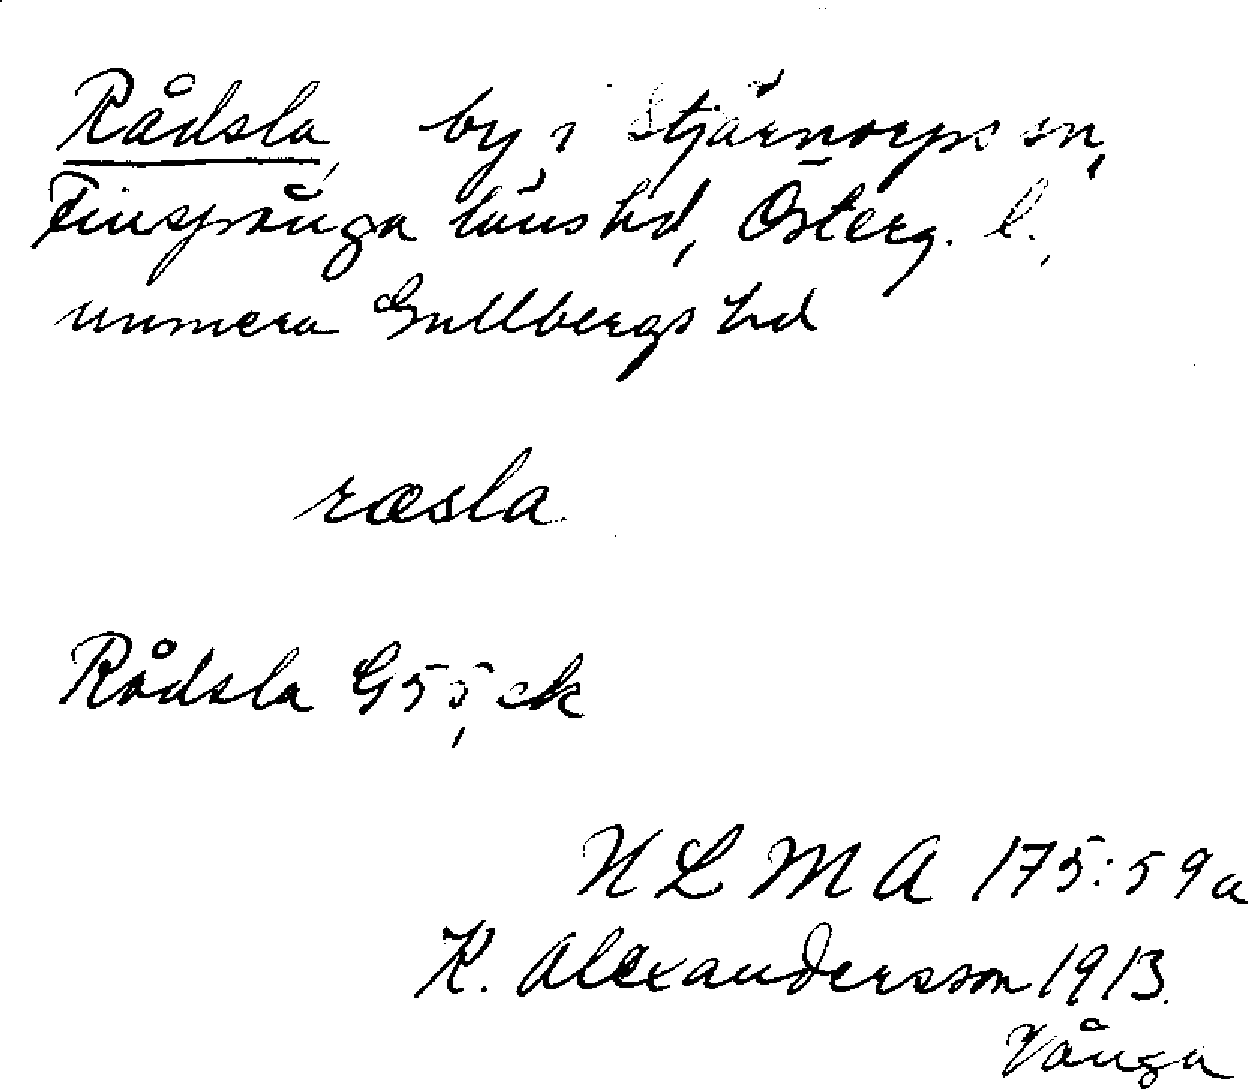 Rådsla, by i Stjärnorps sn,
Finspånga läns hd, Österg. l.,
numera Gullbergs hd
ræsla
Rådsla G55, ek
ULMA 175:59a
K. Alexandersson 1913.
Vånga